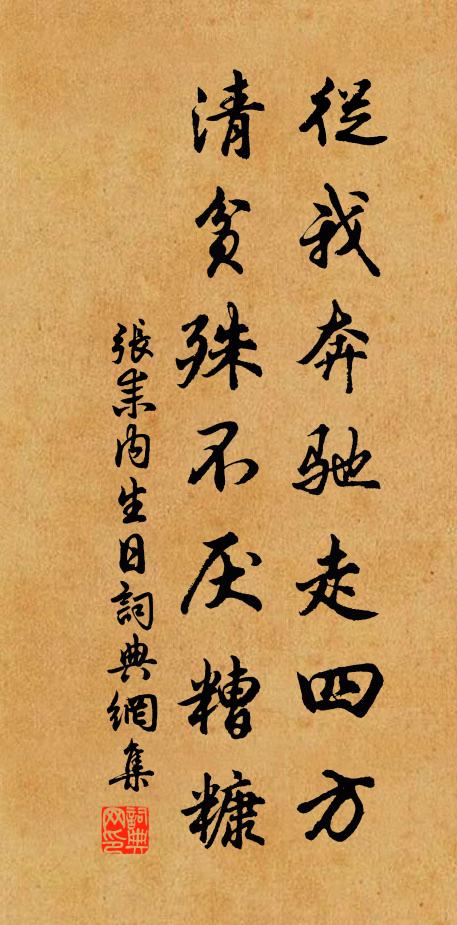 從我奔馳走四方
清貧殊不厌糟糠
張耒内生日詞典網集
詞典网印